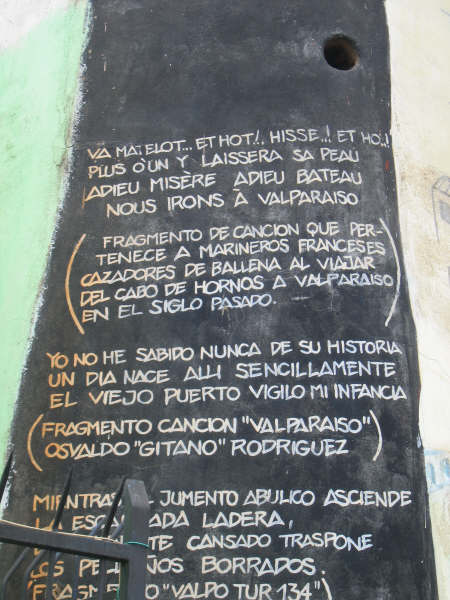 VA MATELOT... ET HOT!.. HISSE...! ET HO..!
PLUS D'UN Y LAISSERA SA PEAU
ADIEU MISÈRE ADIEU BATEAU
NOUS IRONS À VALPARAISO
(FRAGMENTO DE CANCION QUE PER-
TENECE A MARINEROS FRANCESES
CAZADORES DE BALLENA AL VIAJAR
DEL CABO DE HORNOS A VALPARAISO
EN EL SIGLO PASADO.)
YO NO HE SABIDO NUNCA DE SU HISTORIA
UN DIA NACE ALLI SENCILLAMENTE
EL VIEJO PUERTO VIGILO MI INFANCIA
(FRAGMENTO CANCION "VALPARAISO")
OSVALDO "GITANO" RODRIGUEZ
MIENTRAS JUMENTO ABULICO ASCIENDE
LA LADERA,
CANSADO TRASPONE
LOS BORRADOS.
"VALPO TUR 134")